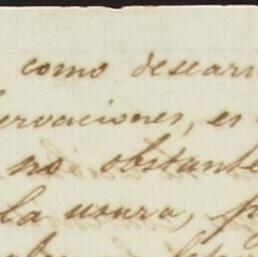 como desear
ervaciones, es
no obstante
la usura, p